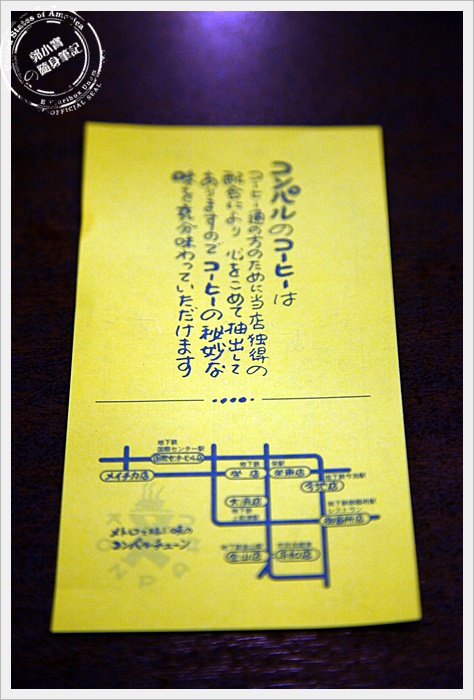 States of America
郭小寶
の隨身筆記
E Pluribus Unum
OFFICIAL SEAL
コンパルのコーヒーは
コーヒー通の方のために当店独得の
配合により 心をこめて抽出して
ありますのでコーヒーの秘妙な
味を充分味わっていただけます
地下鉄
国際センター駅
国際センタービル店
メイチカ店
地下鉄
栄駅
栄店
栄東店
地下鉄今池駅
今池店
大須店
地下鉄
上前津駅
地下鉄御器所駅
レストラン
御器所店
地下鉄金山駅
金山店
メトロを結ぶ味の
コンパルチェーン